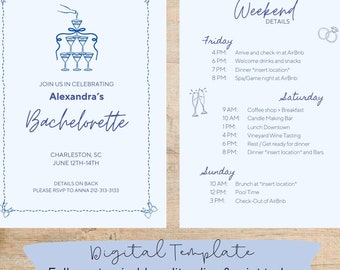 JOIN US IN CELEBRATING
Alexandra's
Bachelorette
CHARLESTON, SC
JUNE 12TH-14TH
DETAILS ON BACK
PLEASE RSVP TO ANNA 212-313-3133
Weekend
DETAILS
Friday
4 PM: Arrive and check-in at AirBnb
6 PM: Welcome drinks and snacks
7 PM: Dinner *insert location*
8 PM: Spa/Game night at AirBnb
Saturday
9 AM: Coffee shop + Breakfast
10 AM: Candle Making Bar
1 PM: Lunch Downtown
4 PM: Vineyard Wine Tasting
6 PM: Rest / Get ready for dinner
8 PM: Dinner *insert location* and Bars
Sunday
10 AM: Brunch at *insert location*
12 PM: Pool Time
3 PM: Check-Out of AirBnb
Digital Template